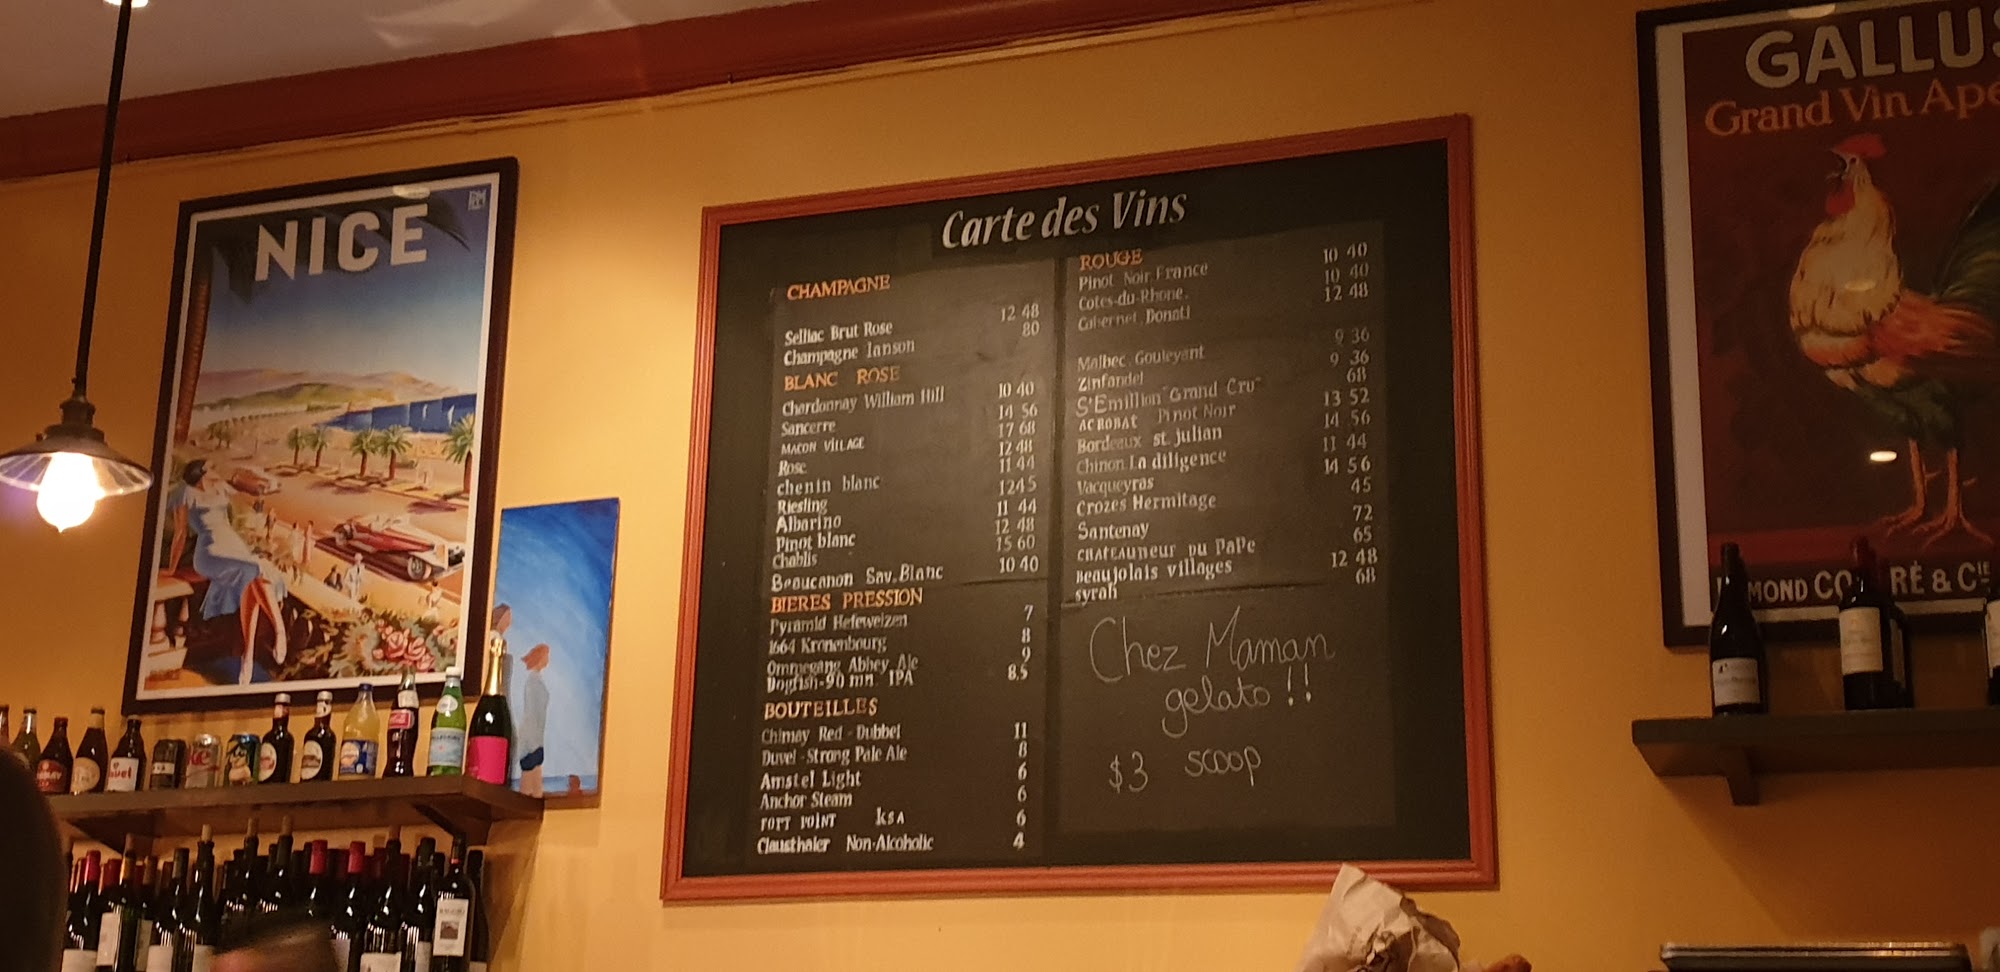 NICE
Carte des Vins
CHAMPAGNE
Selliac Brut Rose 12 48
Champagne Lanson 80
BLANC ROSE
Chardonnay William Hill 10 40
Sancerre 14 56
MACON VILLAGE 17 68
Rose 12 48
chenin blanc 11 44
Riesling 12 45
Albarino 11 44
Pinot blanc 12 48
Chablis 15 60
Beaucanon Sav.Blanc 10 40
BIERES PRESSION
Pyramid Hefeweizen 7
1664 Kronenbourg 8
Ommegang Abbey Ale 9
Dogfish-90 mn IPA 8.5
BOUTEILLES
Chimay Red - Dubbel 11
Duvel - Strong Pale Ale 8
Amstel Light 6
Anchor Steam 6
FORT POINT KSA 6
Clausthaler Non-Alcoholic 4
ROUGE
Pinot Noir France 10 40
Cotes-du-Rhone. 10 40
Cabernet Donati 12 48
Malbec Gouleyant 9 36
Zinfandel 9 36
S'Emillion "Grand Cru" 68
ACROBAT Pinot Noir 13 52
Bordeaux st. julian 14 56
Chinon La diligence 11 44
Vacqueyras 14 56
Crozes Hermitage 45
Santenay 72
CHATEAUNEUR DU PAPE 65
Beaujolais villages 12 48
syrah 68
Chez Maman
gelato !!
$3 scoop
GALLUS
Grand Vin Apé
MOND CO RÉ & CIE